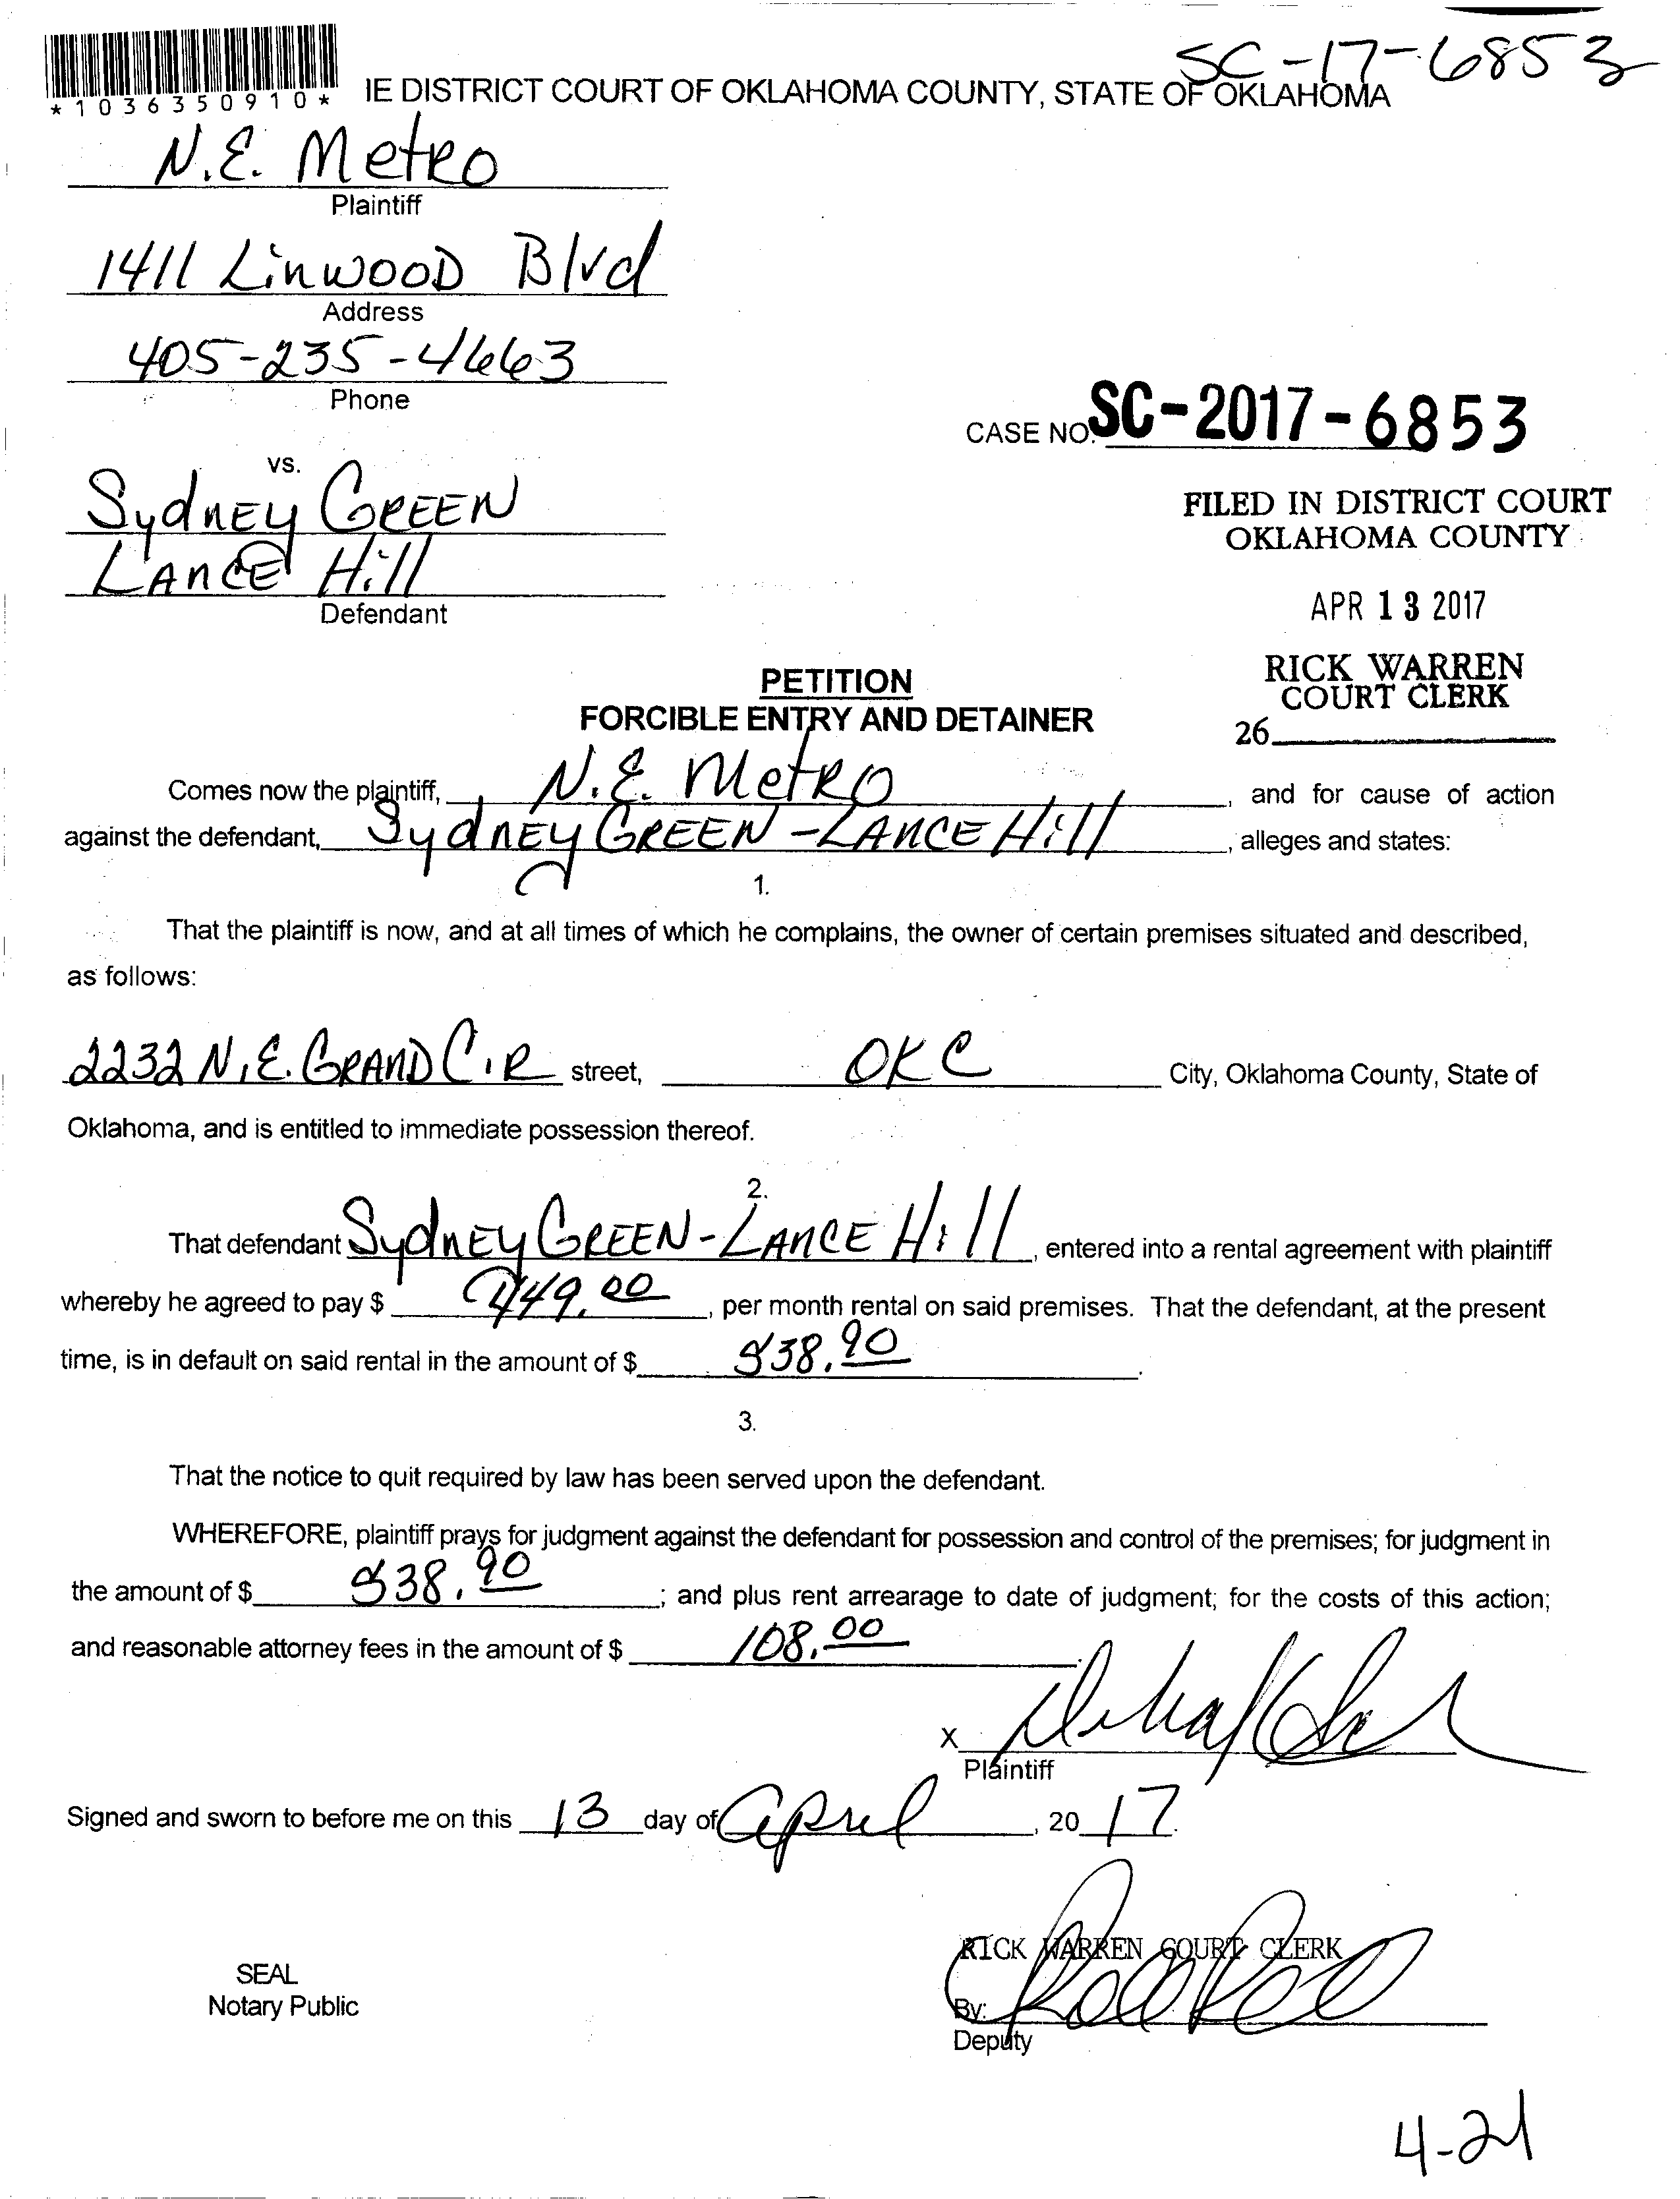 SC-17-6853
*1036350910* IE DISTRICT COURT OF OKLAHOMA COUNTY, STATE OF OKLAHOMA
N.E. Metro
Plaintiff
1411 Linwood Blvd
Address
405-235-4663
Phone
CASE NO. SC-2017-6853
vs.
Sydney Green
Lance Hill
Defendant
FILED IN DISTRICT COURT
OKLAHOMA COUNTY
APR 13 2017
RICK WARREN
COURT CLERK
26
PETITION
FORCIBLE ENTRY AND DETAINER
Comes now the plaintiff, N.E. Metro, and for cause of action
against the defendant, Sydney Green - Lance Hill, alleges and states:
1.
That the plaintiff is now, and at all times of which he complains, the owner of certain premises situated and described,
as follows:
2232 N.E. Grand Cir street, OKC City, Oklahoma County, State of
Oklahoma, and is entitled to immediate possession thereof.
2.
That defendant Sydney Green - Lance Hill, entered into a rental agreement with plaintiff
whereby he agreed to pay $ 449.00, per month rental on said premises. That the defendant, at the present
time, is in default on said rental in the amount of $ .90.
3.
That the notice to quit required by law has been served upon the defendant.
WHEREFORE, plaintiff prays for judgment against the defendant for possession and control of the premises; for judgment in
the amount of $ .90; and plus rent arrearage to date of judgment; for the costs of this action;
and reasonable attorney fees in the amount of $ 108.00.
X
Plaintiff
Signed and sworn to before me on this 13 day of April, 2017.
RICK WARREN COURT CLERK
SEAL
Notary Public
By:
Deputy
4-21